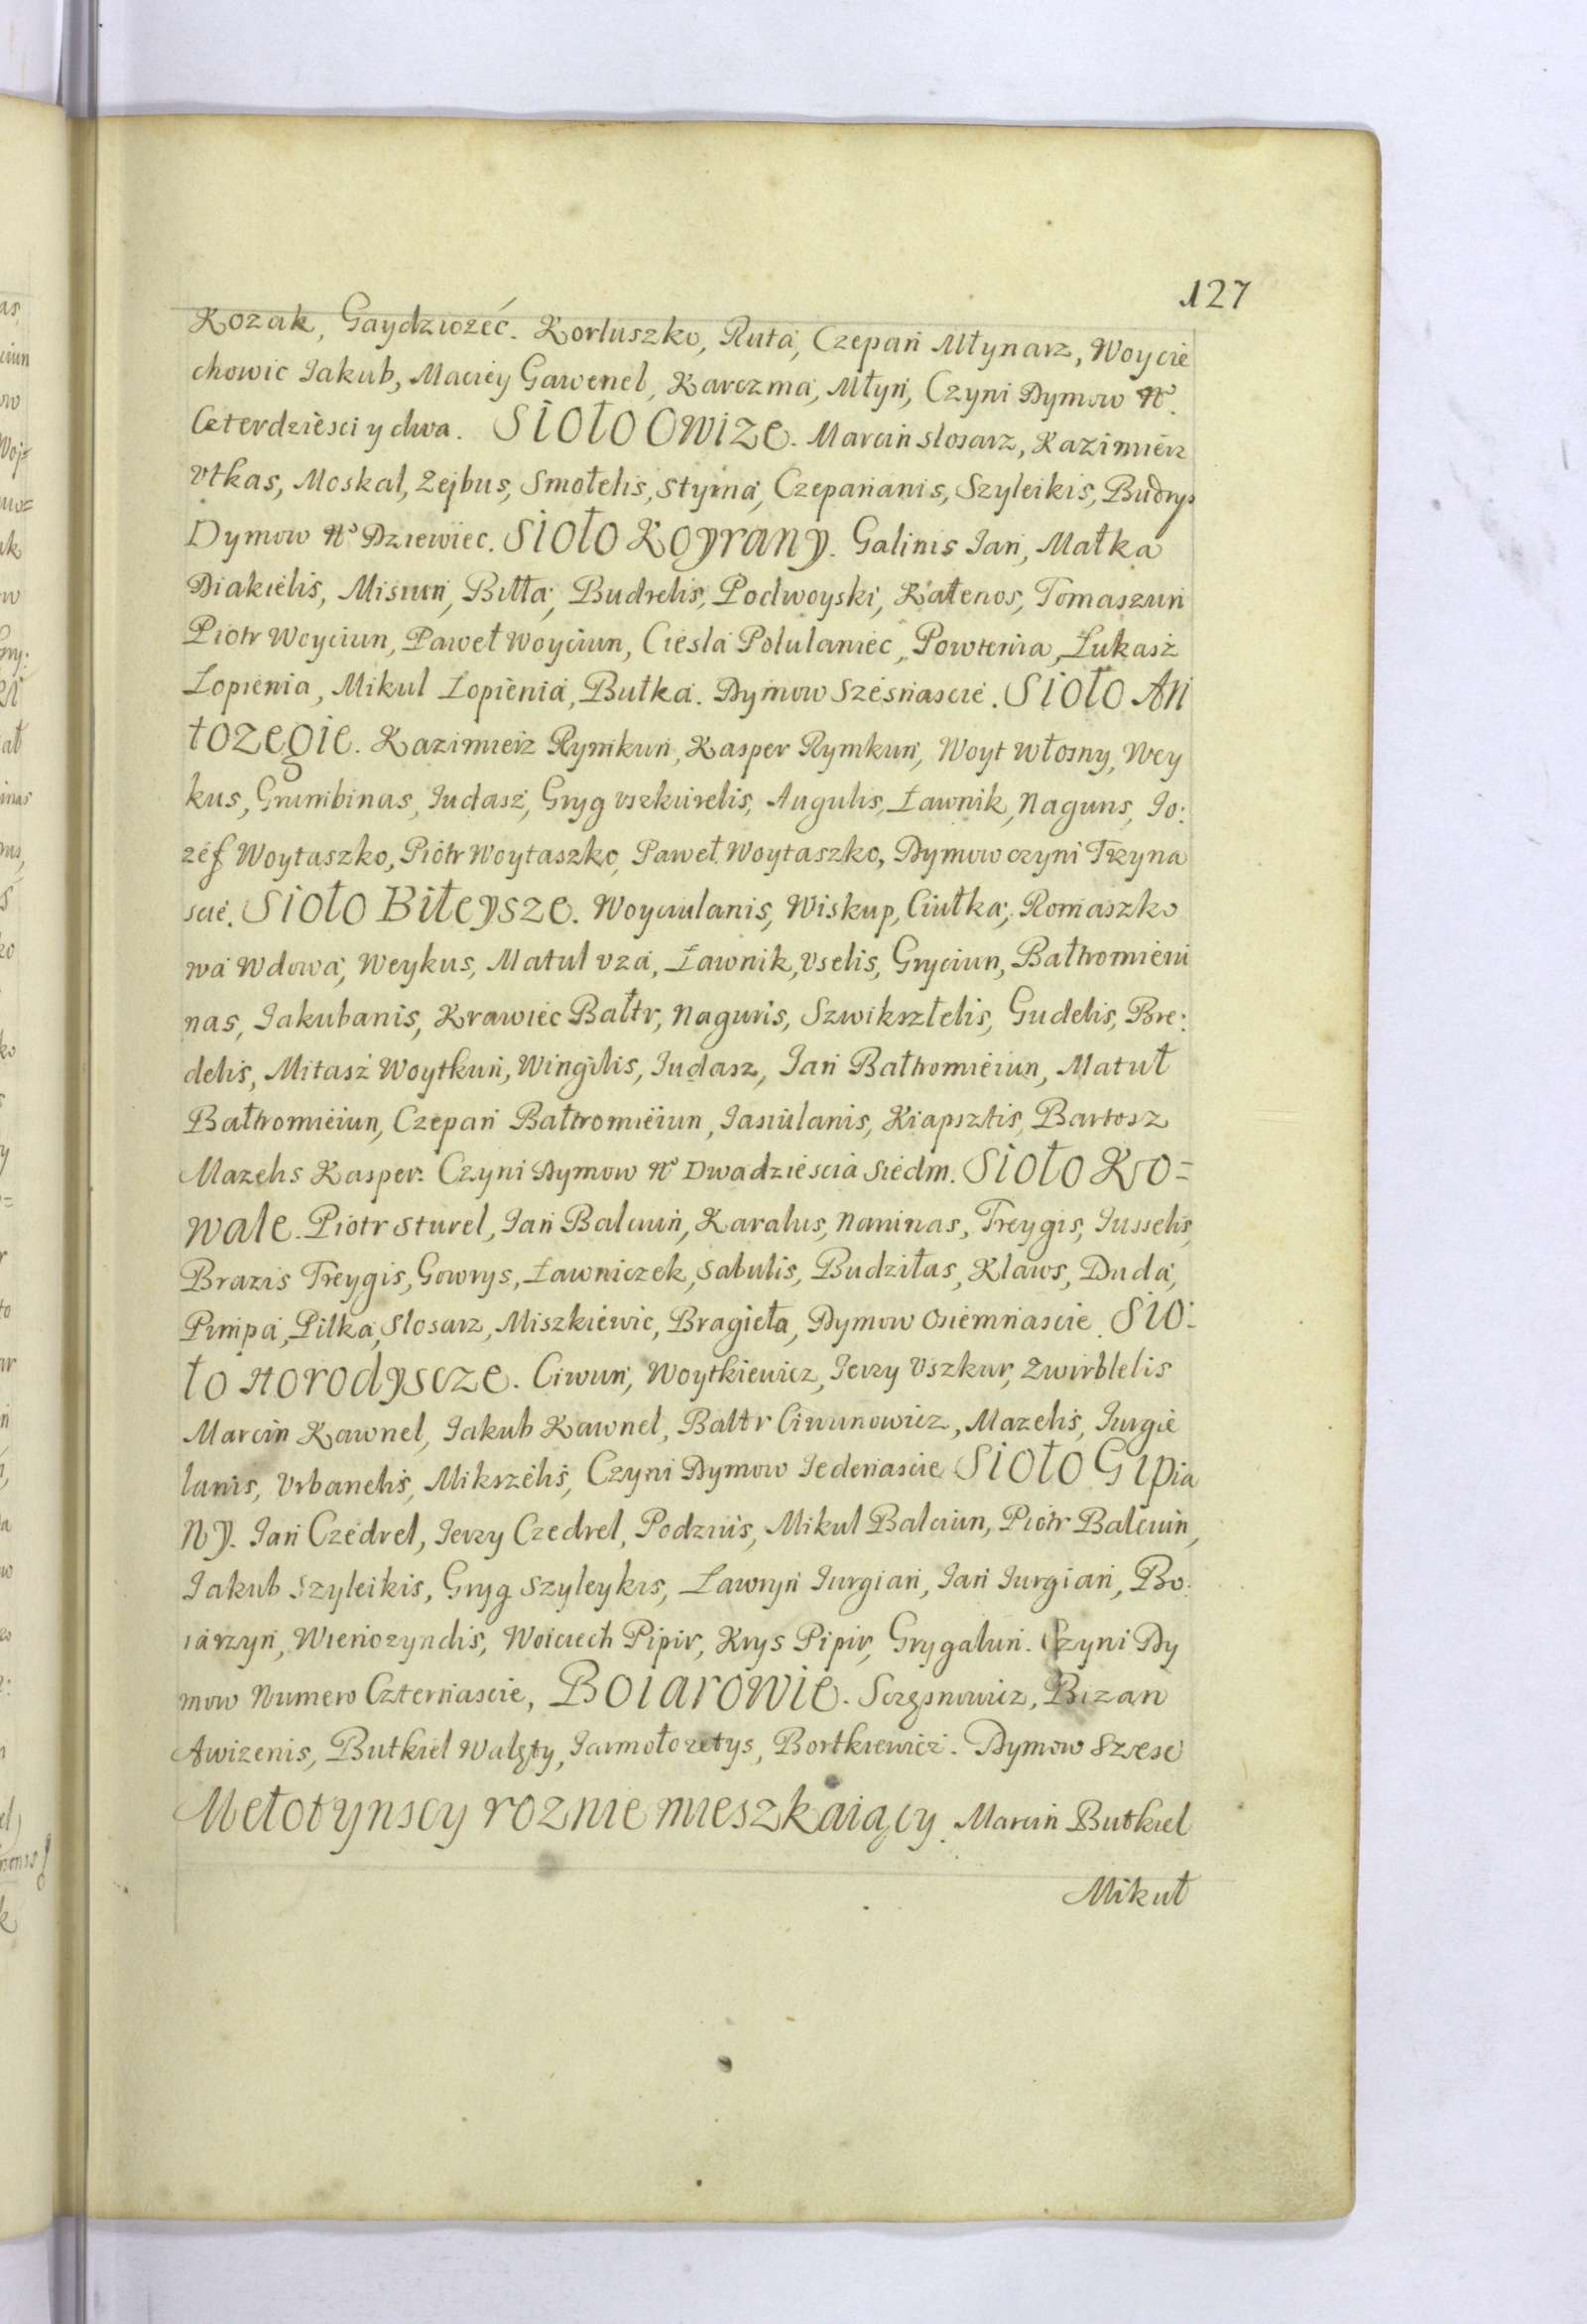 127
Kozak, Gaydziozeć. Korłuszko, Ruta, Czepań Młynarz, Woycie
chowic Jakub, Maciey Gawenel, Karczma, Młyn, Czyni Dymow No.
Czterdziesci y dwa. SIOŁO OWIZE. Marcin slosarz, Kazimierz
Vtkas, Moskal, Zejbus, Smołelis, Styrna, Czepananis, Szyleikis, Budrys
Dymow No Dziewiec. SIOŁO KOYRANY. Galinis Jan, Małka
Diakielis, Misiun, Biłła, Budrelis, Podwoyski, Kałenos, Tomaszun
Piotr Woyciun, Paweł Woyciun, Ciesla Polulaniec, Powtenia, Łukasz
Łopienia, Mikul Łopienia, Bułka. Dymow Szesnascie. SIOŁO AN
TOZEGIE. Kazimierz Rymkun, Kasper Rymkun, Woyt Włosny, Wey
kus, Grumbinas, Judasz, Gryg Vszkurelis, Augulis, Ławnik, Naguns, Jo:
zef Woytaszko, Piotr Woytaszko, Paweł Woytaszko, Dymow czyni Trzyna
scie. SIOŁO BIŁEYSZE. Woyciulanis, Wiskup, Ciułka, Romaszko
wa Wdowa, Weykus, Matul vza, Ławnik, Vselis, Gryciun, Bałtromieiu
nas, Jakubanis, Krawiec Bałtr, Naguris, Szwiksztelis, Gudelis, Bre:
delis, Mitasz Woytkun, Wingilis, Judasz, Jan Bałtromieiun, Matuł
Bałtromieiun, Czepan Bałtromieiun, Jasiulanis, Kiapsztis, Bartosz
Mazelis Kasper. Czyni Dymow No Dwadziescia Siedm. SIOŁO KO=
WALE. Piotr Sturel, Jan Balciun, Karalus, Naninas, Treygis, Jusselis,
Brazis Treygis, Gowrys, Ławniczek, Sabulis, Budziłas, Klaws, Duda,
Pimpa, Pilka, Slosarz, Miszkiewic, Bragieła, Dymow Osiemnascie. SIO:
ŁO HORODYSCZE. Ciwun, Woytkiewicz, Jerzy Vszkur, Zwirblelis
Marcin Kawnel, Jakub Kawnel, Baltr Ciwunowicz, Mazelis, Jurgie
lanis, Vrbanelis, Mikszelis, Czyni Dymow Jedenascie SIOŁO GIPIA
NY. Jan Czedrel, Jerzy Czedrel, Podzius, Mikul Balciun, Piotr Balciun,
Jakub Szyleikis, Gryg Szyleykis, Ławryn Jurgian, Jan Jurgian, Bo:
iarzyn, Wienozyndis, Woiciech Pipir, Krys Pipir, Grygaluń. Czyni Dy
mow Numero Czternascie, BOIAROWIE. Sczęsnowicz, Bizan
Awizenis, Butkiel Walęty, Jarmołozetys, Bortkiewicz. Dymow Szesc
Mełotynscy roznie mieszkaiący. Marcin Butkiel
Mikuł